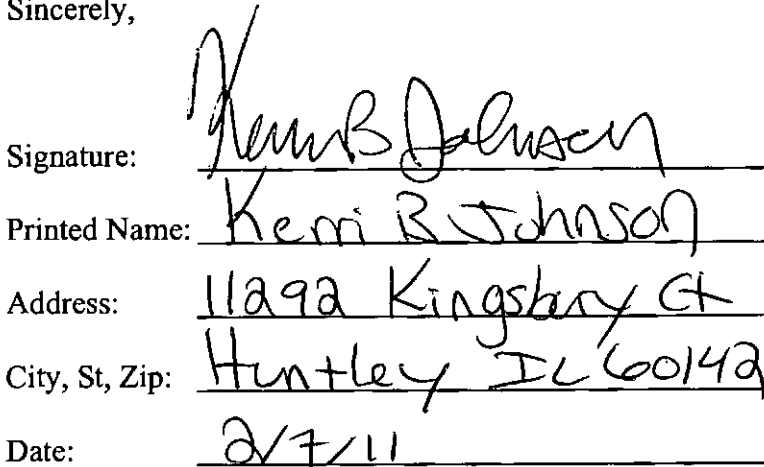 Sincerely,
Signature: Kerri B Johnson
Printed Name: Kerri B Johnson
Address: 11292 Kingsbury Ct
City, St, Zip: Huntley IL 60142
Date: 2/7/11